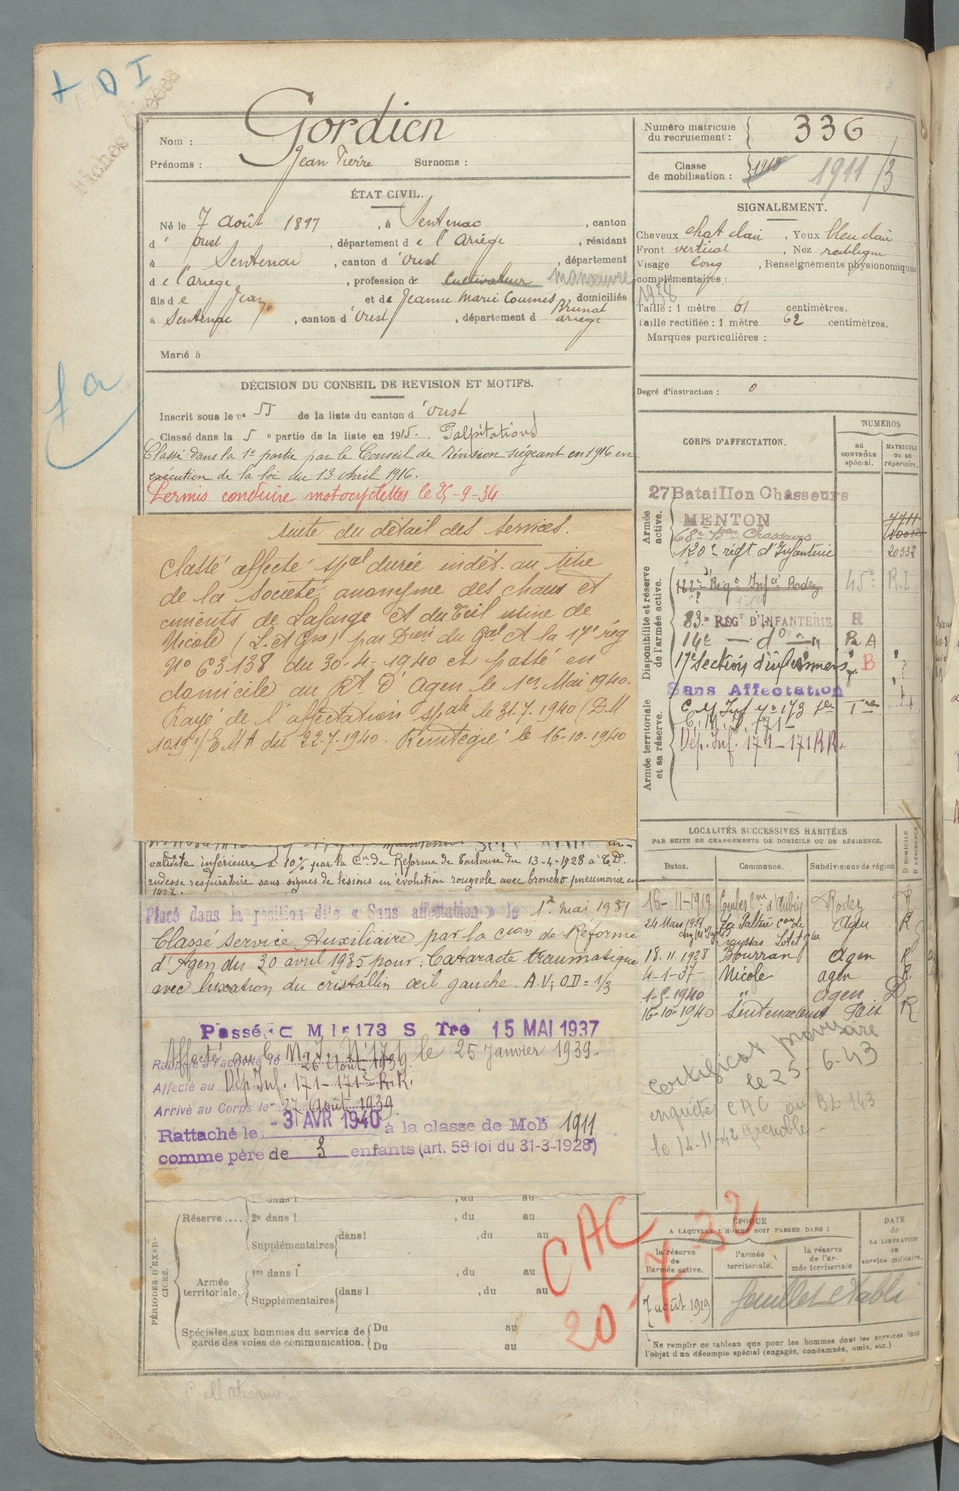 + D I
Nom : Gordien
Prénoms : Jean Pierre Surnoms :
Numéro matricule du recrutement : 336
Classe de mobilisation : 1918 1911/3
ÉTAT CIVIL.
Né le 7 août 1897, à Sentenac, canton
d' oust, département de l'Ariège, résidant
à Sentenac, canton d'oust, département
de l'ariege, profession de Cultivateur manœuvre
fils de Jean et de Jeanne Marie Coumes Brunat, domiciliés
à Sentenac, canton d'oust, département d ariège
Marié à
SIGNALEMENT.
Cheveux chat clair, Yeux bleu clair
Front vertical, Nez rectiligne
Visage long, Renseignements physionomiques
complémentaires :
1938
Taille : 1 mètre 61 centimètres.
Taille rectifiée : 1 mètre 62 centimètres.
Marques particulières :
Degré d'instruction : 0
DÉCISION DU CONSEIL DE REVISION ET MOTIFS.
Inscrit sous le n° 55 de la liste du canton d'oust
Classé dans la 5e partie de la liste en 1915. Palpitations
Classé dans la 1re partie par le Conseil de révision siégeant en 1916 en
exécution de la loi du 13 Avril 1916.
Permis conduire motocyclettes le 25-9-34
suite du détail des services.
Classé affecté spal durée indét. au titre
de la Société anonyme des chaux et
ciments de Lafarge et du Teil usine de
Nicole (L. et Gne) par Don du Gal Ct la 17e rég
N° 63138 du 30-4-1940 et passé en
domicile au Rt d'Agen le 1er Mai 1940.
Rayé de l'affectation spale le 31.7.1940 (D.M
1019/EMA du 22-7-1940 Réintégré le 16-10-1940
validité inférieure à 10% par la Con de Réforme de Toulouse du 13-4-1928
rudesse respiratoire sans signes de lésions en évolution rougeole avec broncho pneumonie en
Placé dans la position dite « Sans affectation » le 1er mai 1931
Classé Service Auxiliaire par la Cion de Réforme
d'Agen du 30 avril 1935 pour : Cataracte traumatique
avec luxation du cristallin œil gauche. A.V; OD = 1/3
Passé: C M Ie 173 S Tre 15 MAI 1937
Affecté au C.M.I. N° 171 le 25 Janvier 1939.
Rappelé à l'activité le 26 août 1939
Affecté au Dép. Inf. 171-171e R.R.
Arrivé au Corps le 27 Août 1939
Rattaché le - 3 AVR 1940 à la classe de Mob 1911
comme père de 3 enfants (art. 58 loi du 31-3-1928)
CORPS D'AFFECTATION.
NUMÉROS
AU CONTRÔLE SPÉCIAL.
MATRICULE OU AU RÉPERTOIRE.
Armée active.
27 Bataillon Chasseurs
MENTON
68e Bon Chasseurs
120e régt d'Infanterie 20332
Disponibilité et réserve de l'armée active.
122e Rég. Infie Rodez 45e R.I
83e REGt D'INFANTERIE R
14e — do — R A
17e Section d'infirmiers B
Sans Affectation
Armée territoriale et sa réserve.
C. M. Inf n° 173 Sre Tre
C. M. I. 171
Dép. Inf. 171-171 RR.
LOCALITÉS SUCCESSIVES HABITÉES
PAR SUITE DE CHANGEMENTS DE DOMICILE OU DE RÉSIDENCE.
Dates. Communes. Subdivisions de région DOMICILE RÉSIDENCE
16-11-1919 Rodez R
24 Mars 1927 Agen R
18.11.1928 Bourran agen R
4-1-37 Nicole agen R
1-5-1940 " agen D
16-10-1940 Sentenac oust Foix R
Certificat provisoire
le 25-6-43
enquête CAC au BL 143
le 14-11-42 Grenoble
CAC
20-7-32
PÉRIODES D'EXERCICES.
Réserve.... 2e dans l , du au
Supplémentaires dans l , du au
Armée territoriale. 1re dans l , du au
Supplémentaires dans l , du au
Spéciales aux hommes du service de garde des voies de communication. Du au
Du au
ÉPOQUE
A LAQUELLE L'HOMME DOIT PASSER DANS :
la réserve de l'armée active. l'armée territoriale. la réserve de l'armée territoriale
DATE DE LA LIBÉRATION du service militaire.
7 août 1919 feuillet établi
Ne remplir ce tableau que pour les hommes dont les services font
l'objet d'un décompte spécial (engagés, condamnés, omis, etc.)